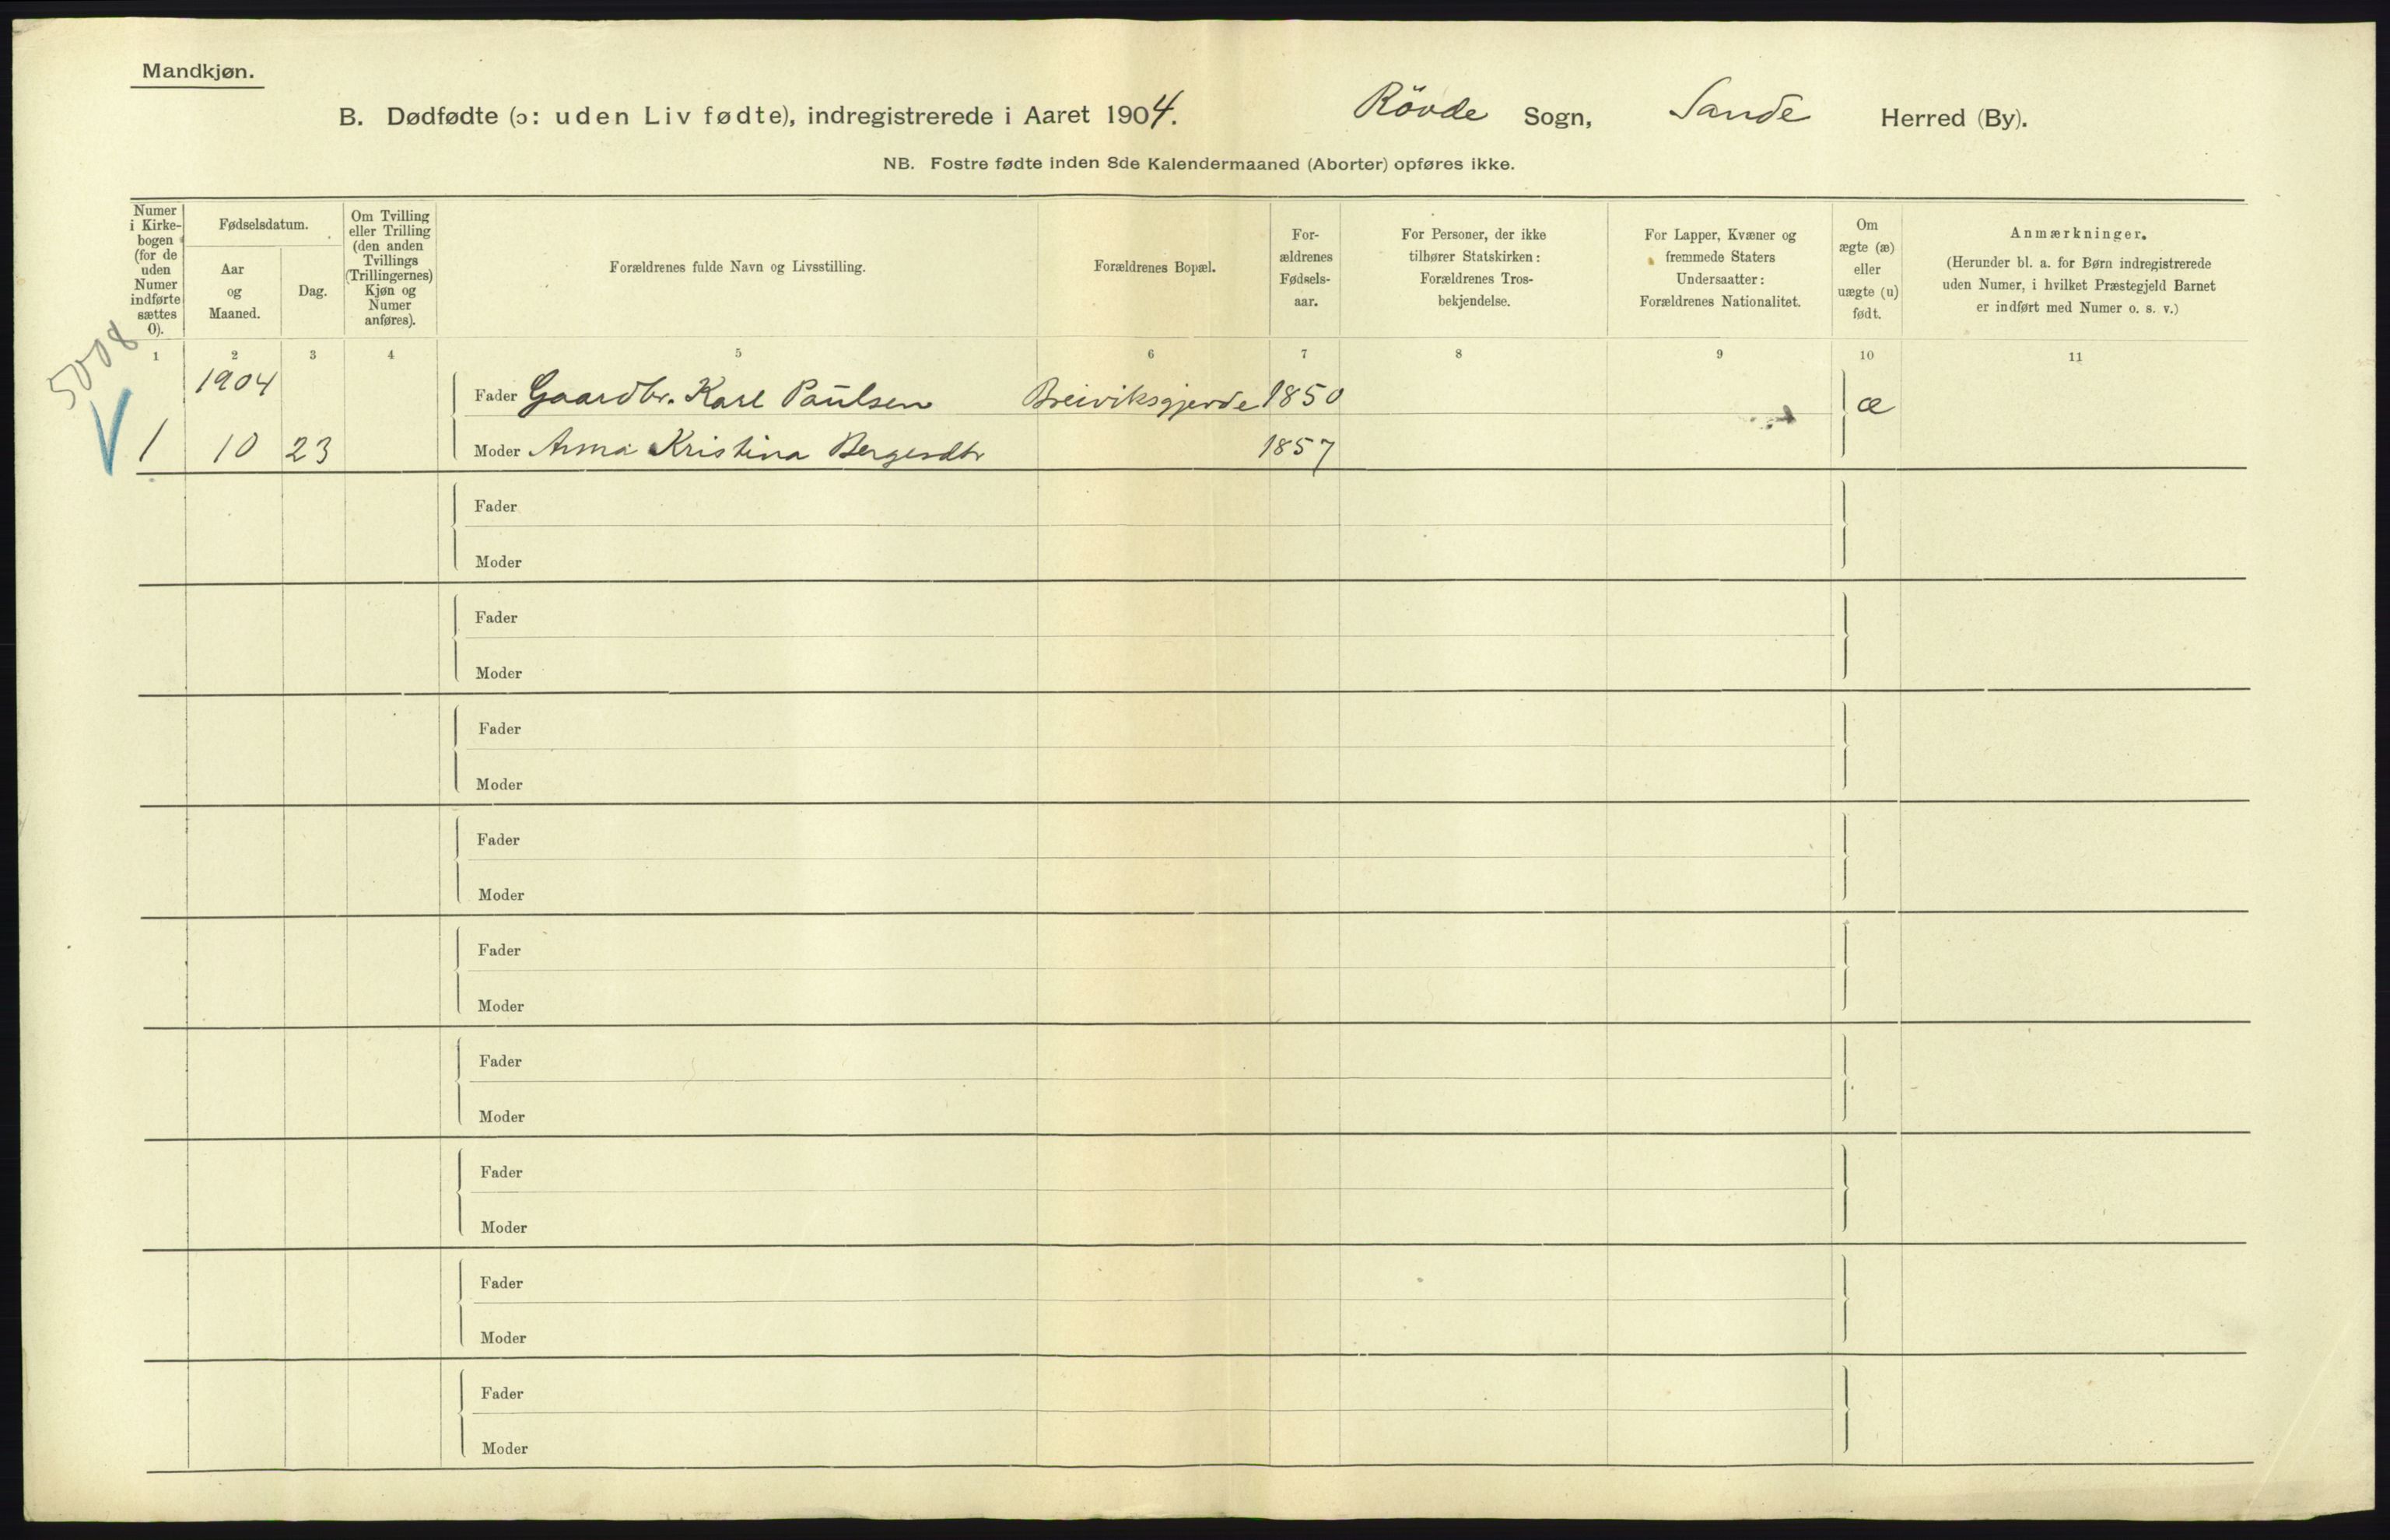 Mandkjøn.
B. Dødfødte (ɔ: uden Liv fødte), indregistrerede i Aaret 1904. Rövde Sogn, Sande Herred (By).
NB. Fostre fødte inden 8de Kalendermaaned (Aborter) opføres ikke.
Numer i Kirke-bogen (for de uden Numer indførte sættes 0).
Fødselsdatum.
Aar og Maaned.
Dag.
Om Tvilling eller Trilling (den anden Tvillings (Trillingernes) Kjøn og Numer anføres).
Forældrenes fulde Navn og Livsstilling.
Forældrenes Bopæl.
For-ældrenes Fødsels-aar.
For Personer, der ikke tilhører Statskirken: Forældrenes Tros-bekjendelse.
For Lapper, Kvæner og fremmede Staters Undersaatter: Forældrenes Nationalitet.
Om ægte (æ) eller uægte (u) født.
Anmærkninger.
(Herunder bl. a. for Børn indregistrerede uden Numer, i hvilket Præstegjeld Barnet er indført med Numer o. s. v.)
1 2 3 4 5 6 7 8 9 10 11
5008
1904 Fader Gaardbr. Karl Paulsen Breiviksgjerde 1850 æ
1 10 23 Moder Anna Kristina Bergesdtr 1857
Fader
Moder
Fader
Moder
Fader
Moder
Fader
Moder
Fader
Moder
Fader
Moder
Fader
Moder
Fader
Moder
Fader
Moder